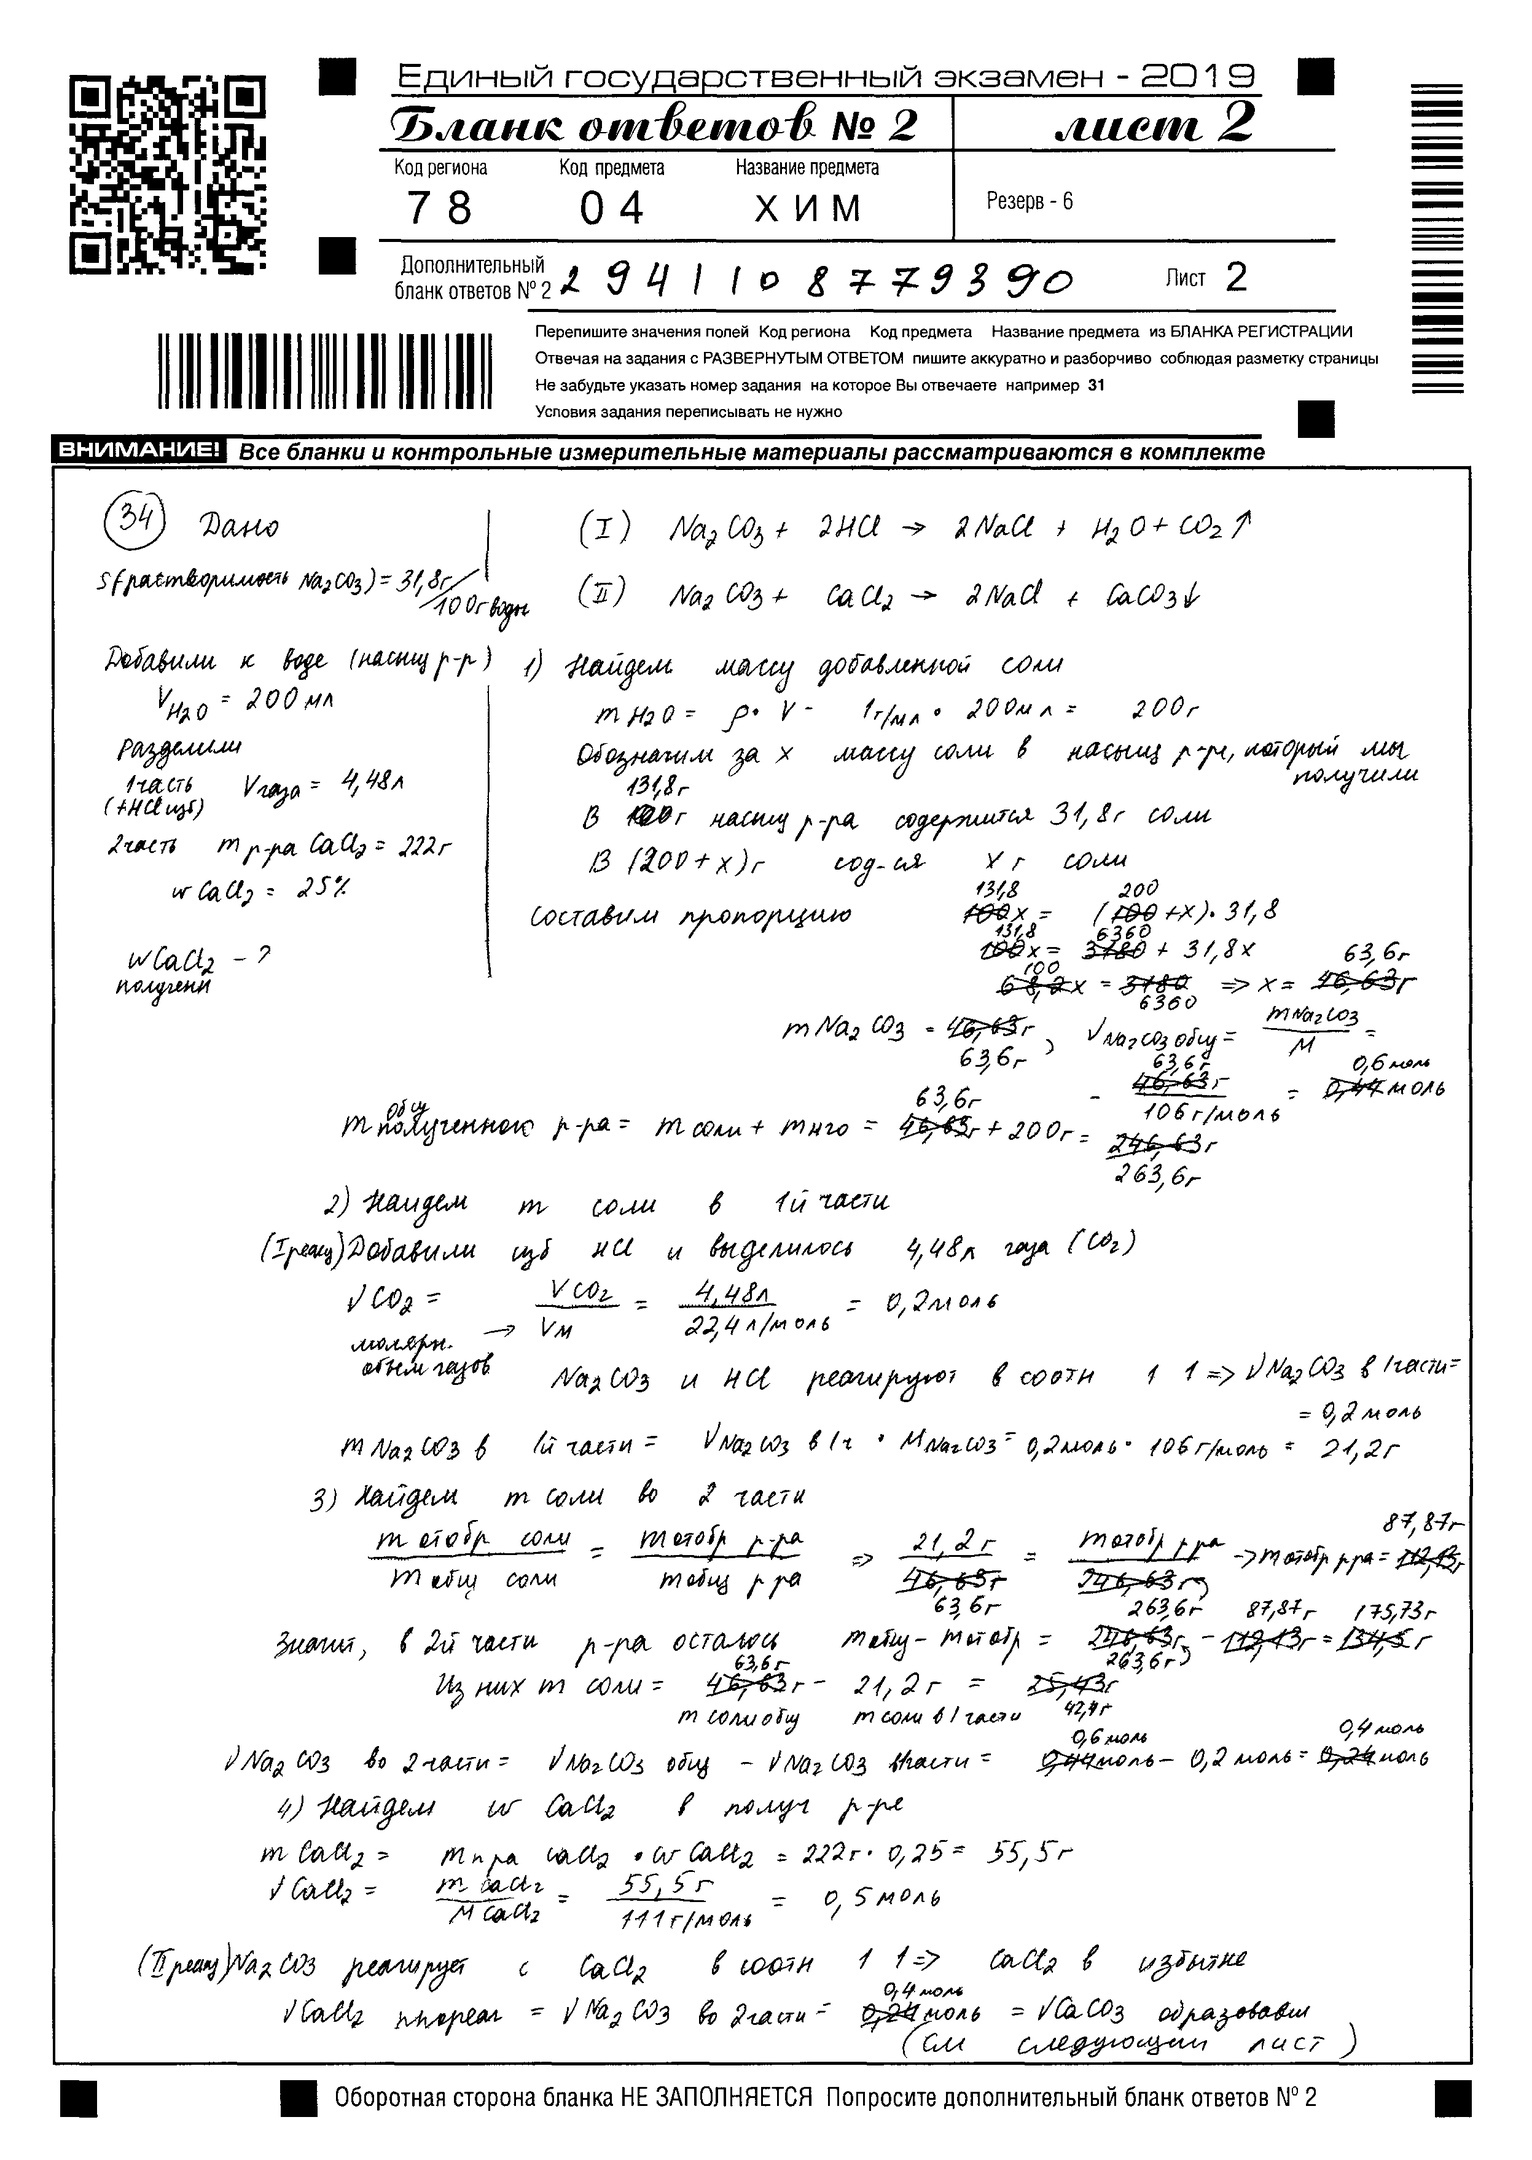 Единый государственный экзамен - 2019
Бланк ответов № 2 лист 2
Код региона Код предмета Название предмета
78 04 ХИМ Резерв - 6
Дополнительный бланк ответов № 2 2941108779390 Лист 2
Перепишите значения полей Код региона Код предмета Название предмета из БЛАНКА РЕГИСТРАЦИИ
Отвечая на задания с РАЗВЕРНУТЫМ ОТВЕТОМ пишите аккуратно и разборчиво соблюдая разметку страницы
Не забудьте указать номер задания на которое Вы отвечаете например 31
Условия задания переписывать не нужно
ВНИМАНИЕ! Все бланки и контрольные измерительные материалы рассматриваются в комплекте
34 Дано
S (растворимость Na2CO3) = 31,8г/100г воды
Добавили к воде (насыщ р-р)
V H2O = 200 мл
Разделили
1 часть (+HCl изб) V газа = 4,48л
2 часть m р-ра CaCl2 = 222г
w CaCl2 = 25%
w CaCl2 - ?
получен
(I) Na2CO3 + 2HCl → 2NaCl + H2O + CO2↑
(II) Na2CO3 + CaCl2 → 2NaCl + CaCO3↓
1) Найдем массу добавленной соли
m H2O = ρ · V = 1г/мл · 200мл = 200г
Обозначим за x массу соли в насыщ р-ре, который мы получили
В 131,8г насыщ р-ра содержится 31,8г соли
В (200+x)г сод-ся x г соли
Составим пропорцию 131,8x = (200+x)·31,8
131,8x = 6360 + 31,8x
100x = 6360 => x = 63,6г
m Na2CO3 = 63,6г, ν Na2CO3 общ = m Na2CO3/M =
= 63,6г/106г/моль = 0,6моль
m общ полученного р-ра = m соли + m H2O = 63,6г + 200г = 263,6г
2) Найдем m соли в 1й части
(I реакц) Добавили изб HCl и выделилось 4,48л газа (CO2)
ν CO2 = V CO2/Vм = 4,48л/22,4л/моль = 0,2моль
молярн. объем газов →
Na2CO3 и HCl реагируют в соотн 1 1 => ν Na2CO3 в 1части =
= 0,2моль
m Na2CO3 в 1й части = ν Na2CO3 в 1ч · M Na2CO3 = 0,2моль · 106г/моль = 21,2г
3) Найдем m соли во 2 части
m отобр соли/m общ соли = m отобр р-ра/m общ р ра => 21,2г/63,6г = m отобр р ра/263,6г → m отобр р ра = 87,87г
Значит, в 2й части р-ра осталось m общ - m отобр = 263,6г - 87,87г = 175,73г
Из них m соли = 63,6г - 21,2г = 42,4г
m соли общ m соли в 1 части
ν Na2CO3 во 2 части = ν Na2CO3 общ - ν Na2CO3 в 1части = 0,6моль - 0,2моль = 0,4моль
4) Найдем w CaCl2 в получ р-ре
m CaCl2 = m р ра CaCl2 · w CaCl2 = 222г · 0,25 = 55,5г
ν CaCl2 = m CaCl2/M CaCl2 = 55,5г/111г/моль = 0,5моль
(II реакц) Na2CO3 реагирует с CaCl2 в соотн 1 1 => CaCl2 в избытке
ν CaCl2 прореаг = ν Na2CO3 во 2части = 0,4моль = ν CaCO3 образовавш
(см следующий лист)
Оборотная сторона бланка НЕ ЗАПОЛНЯЕТСЯ Попросите дополнительный бланк ответов № 2